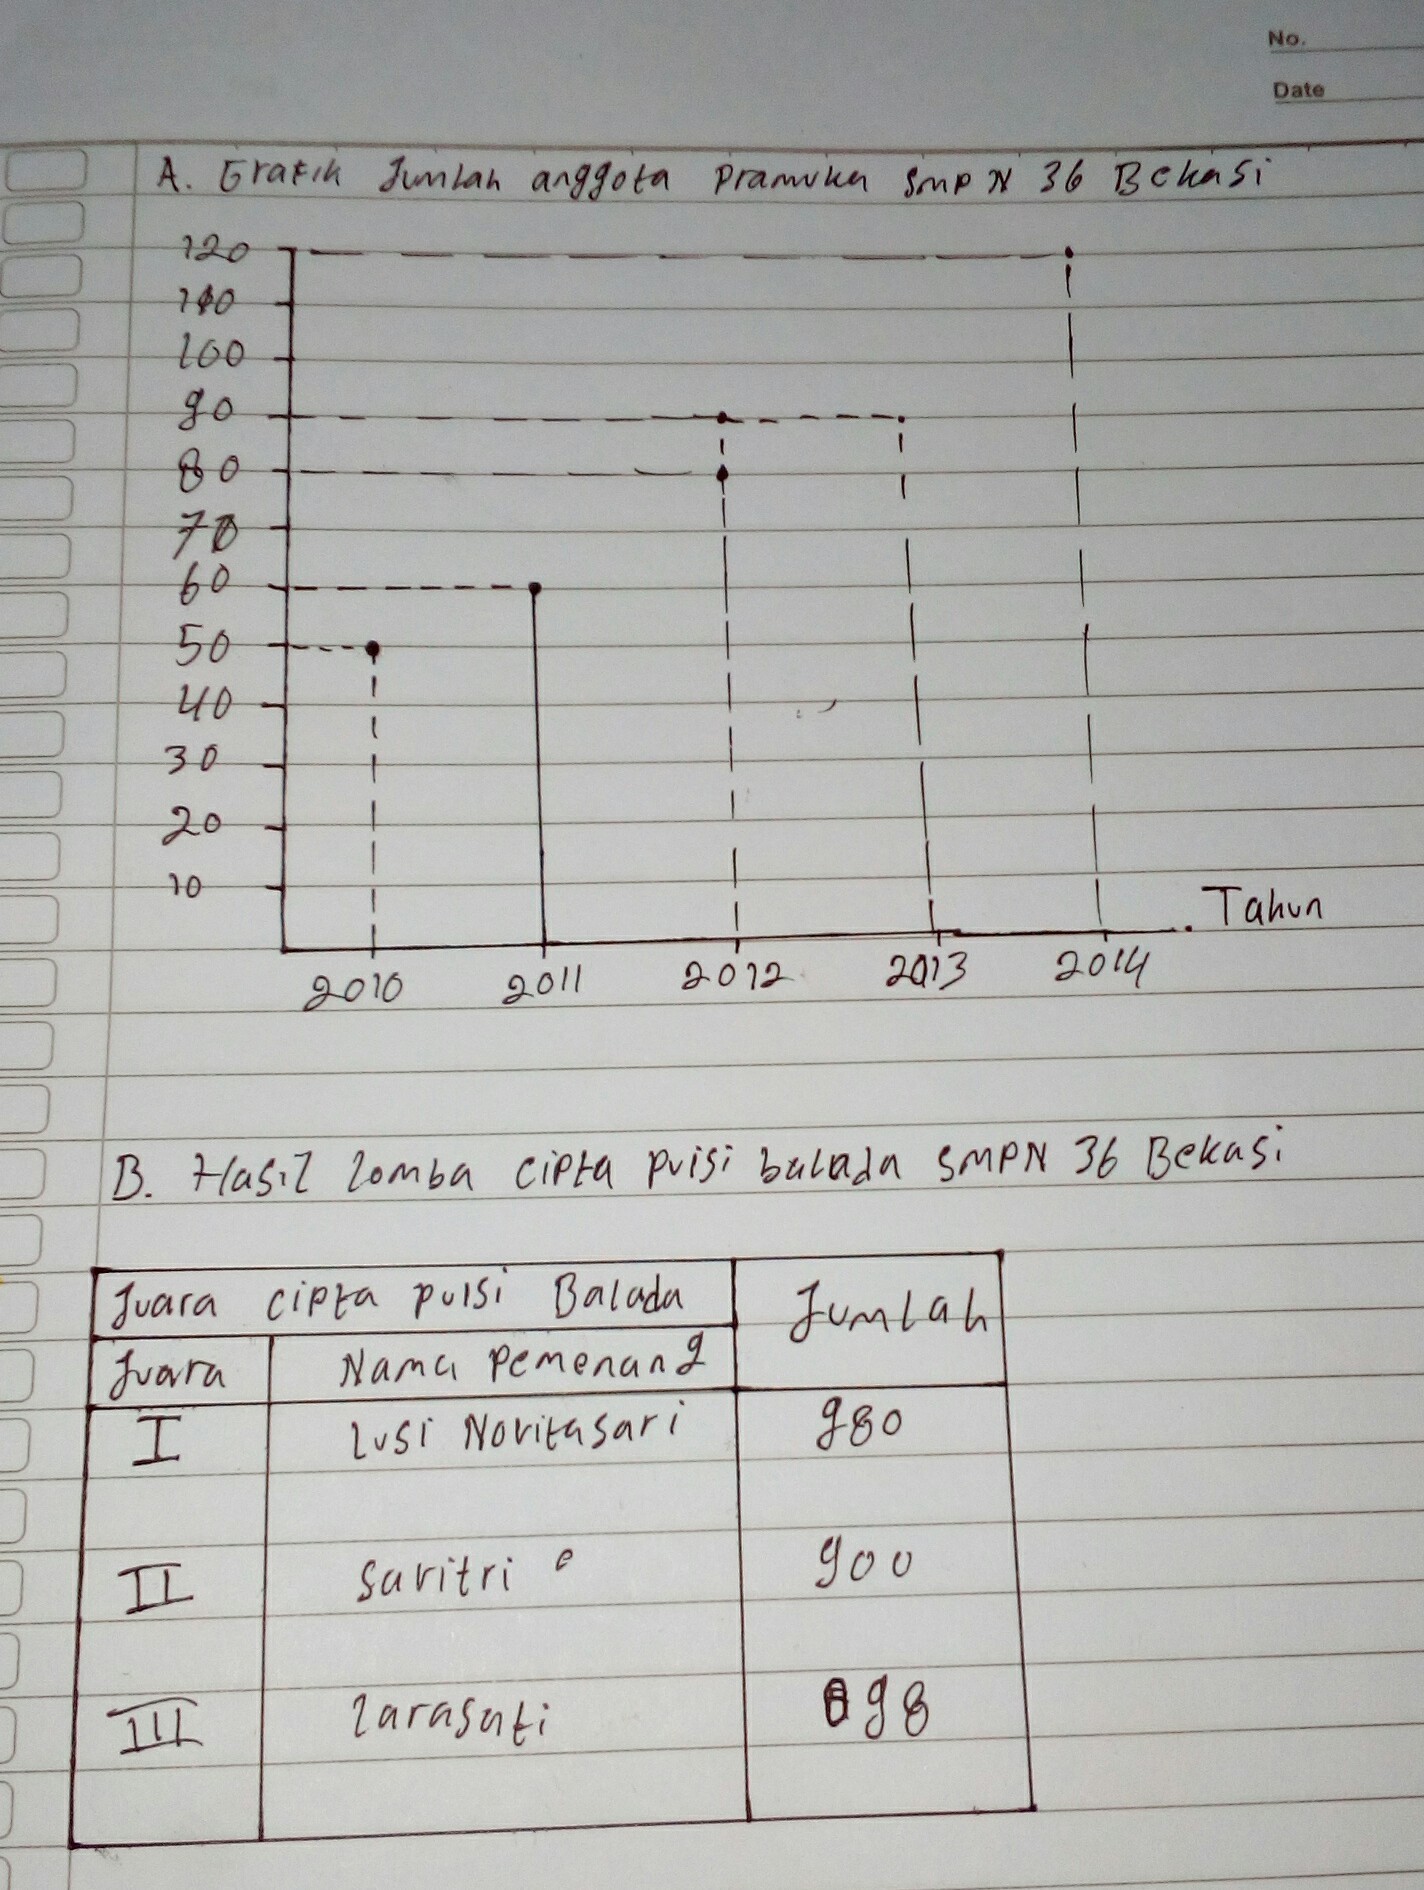 No.
Date
A. Grafik Jumlah anggota Pramuka SMP N 36 Bekasi
120
110
100
90
80
70
60
50
40
30
20
10
Tahun
2010 2011 2012 2013 2014
B. Hasil lomba cipta puisi balada SMPN 36 Bekasi
Juara cipta puisi Balada Jumlah
Juara Nama Pemenang
I Lusi Novitasari 980
II Savitri 900
III Larasati 898